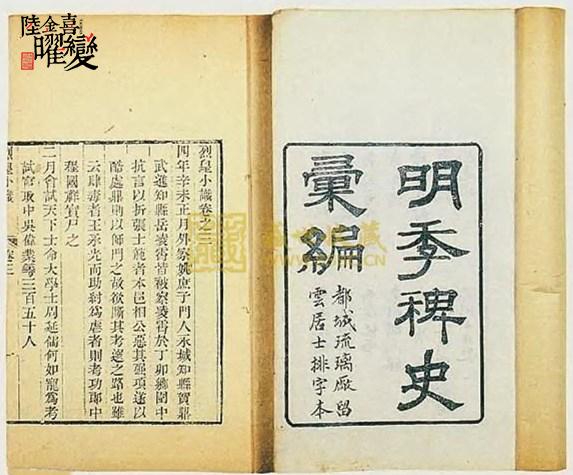 陸金喜
曜變
明季稗史
彙編
都城琉璃廠留
雲居士排字本
烈皇小識卷之三
四年辛未正月外察姚庶子門人永城知縣賀鼎
武進知縣岳凌霄皆被察凌霄於丁卯鄉闈中
抗言以折張士範者本邑相公惡其强項遂以
酷處鼎則以師門之故欲其考選之路也雖
云肆毒者王永光而助紂爲虐者則考功郎中
程國祥實尸之
二月會試天下士命大學士周延儒何如寵爲考
試官取中吳偉業等三百五十人
烈皇小識
卷三